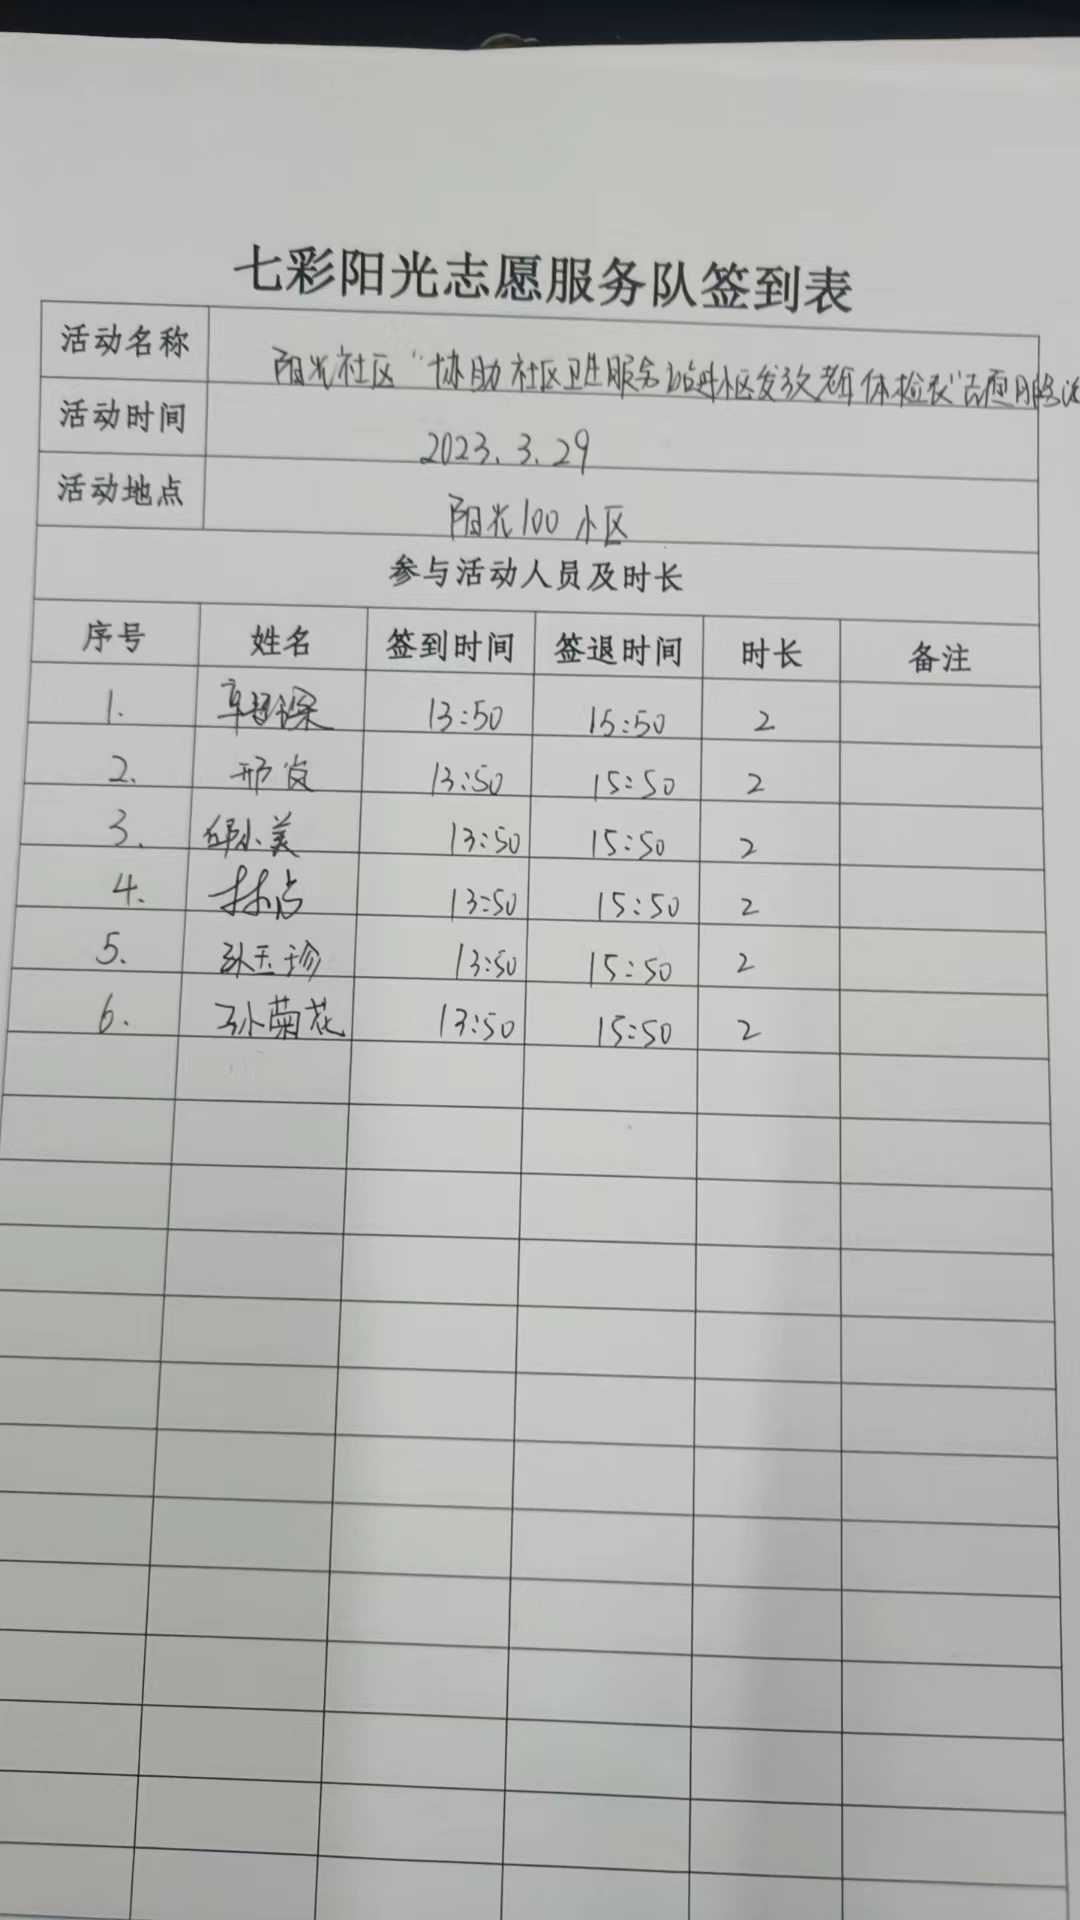 七彩阳光志愿服务队签到表
活动名称 阳光社区“协助社区卫生服务站进小区发放老年体检表”志愿服务活
活动时间 2023.3.29
活动地点 阳光100小区
参与活动人员及时长
序号 姓名 签到时间 签退时间 时长 备注
1. 13:50 15:50 2
2. 邢岚 13:50 15:50 2
3. 邱小美 13:50 15:50 2
4. 13:50 15:50 2
5. 孙玉珍 13:50 15:50 2
6. 孙菊花 13:50 15:50 2